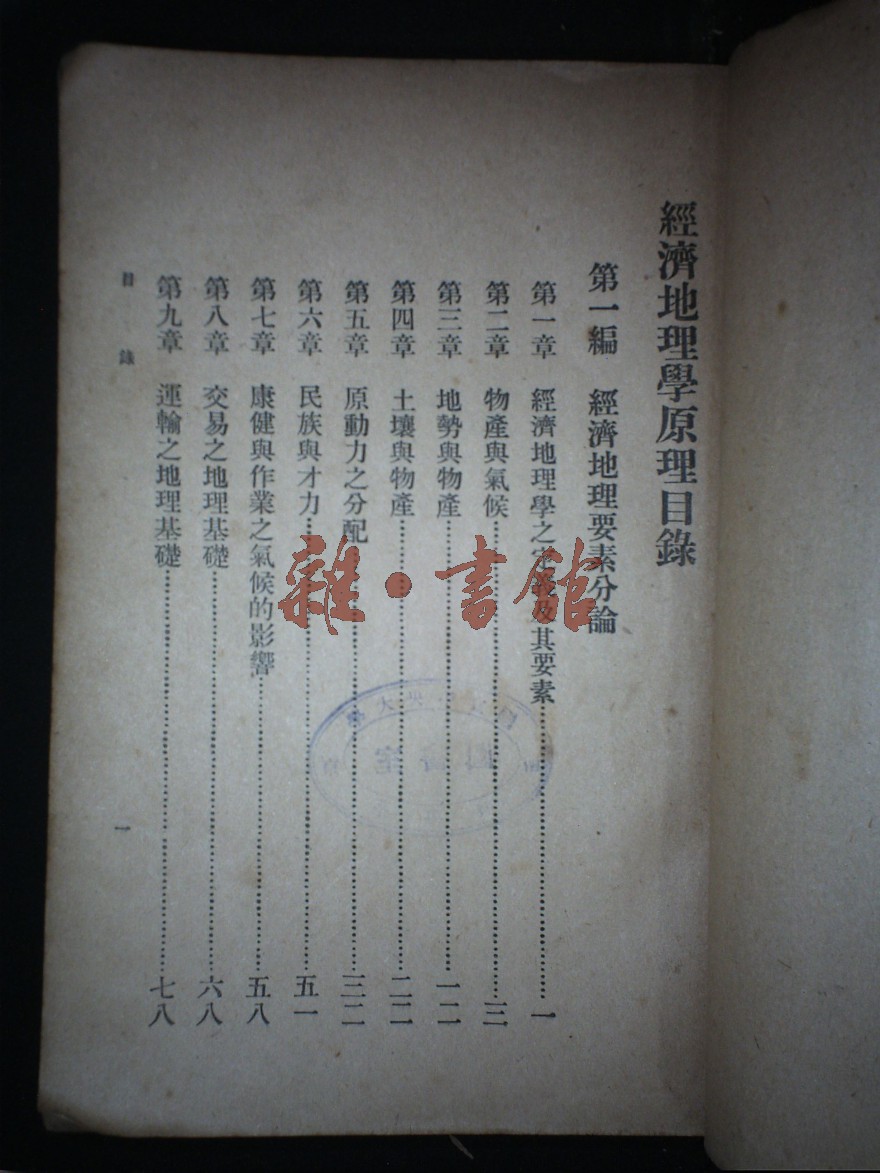 經濟地理學原理目錄
第一編 經濟地理要素分論
第一章 經濟地理學之定義及其要素……一
第二章 物產與氣候……三
第三章 地勢與物產……一二
第四章 土壤與物產……二二
第五章 原動力之分配……三二
第六章 民族與才力……五一
第七章 康健與作業之氣候的影響……五八
第八章 交易之地理基礎……六八
第九章 運輸之地理基礎……七八
目錄
一
雜·書館